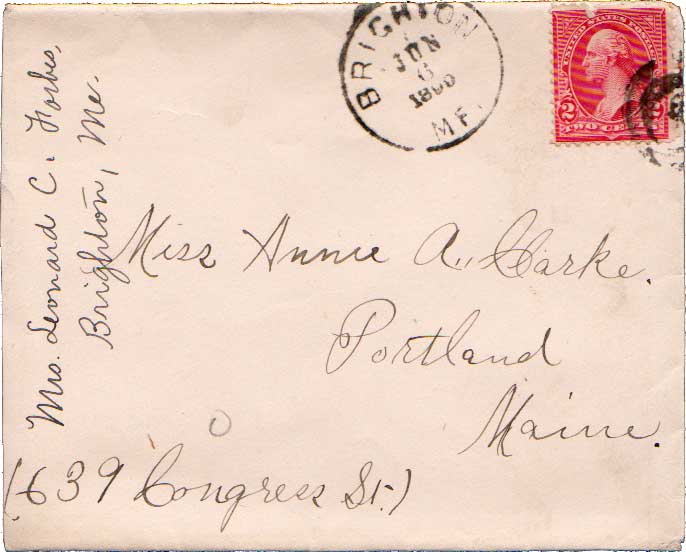 Mrs. Leonard C. Forbes,
Brighton, Me.
BRIGHTON
JUN
6
ME.
UNITED STATES POSTAGE
2 2
TWO CENTS
Miss Annie A. Clarke.
Portland
Maine.
(639 Congress St.)